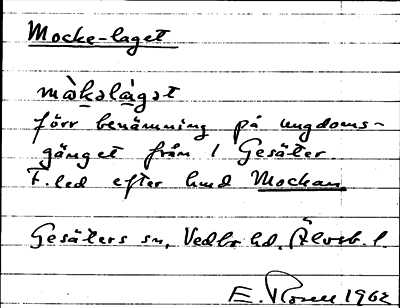 Mocke-laget
mòkəlàgət
förr benämning på ungdoms-
gänget från / Gesäter.
F. led efter hmd Mockan
Gesäters sn, Vedbo hd. Älvsb. l.
E. Rosen 1962